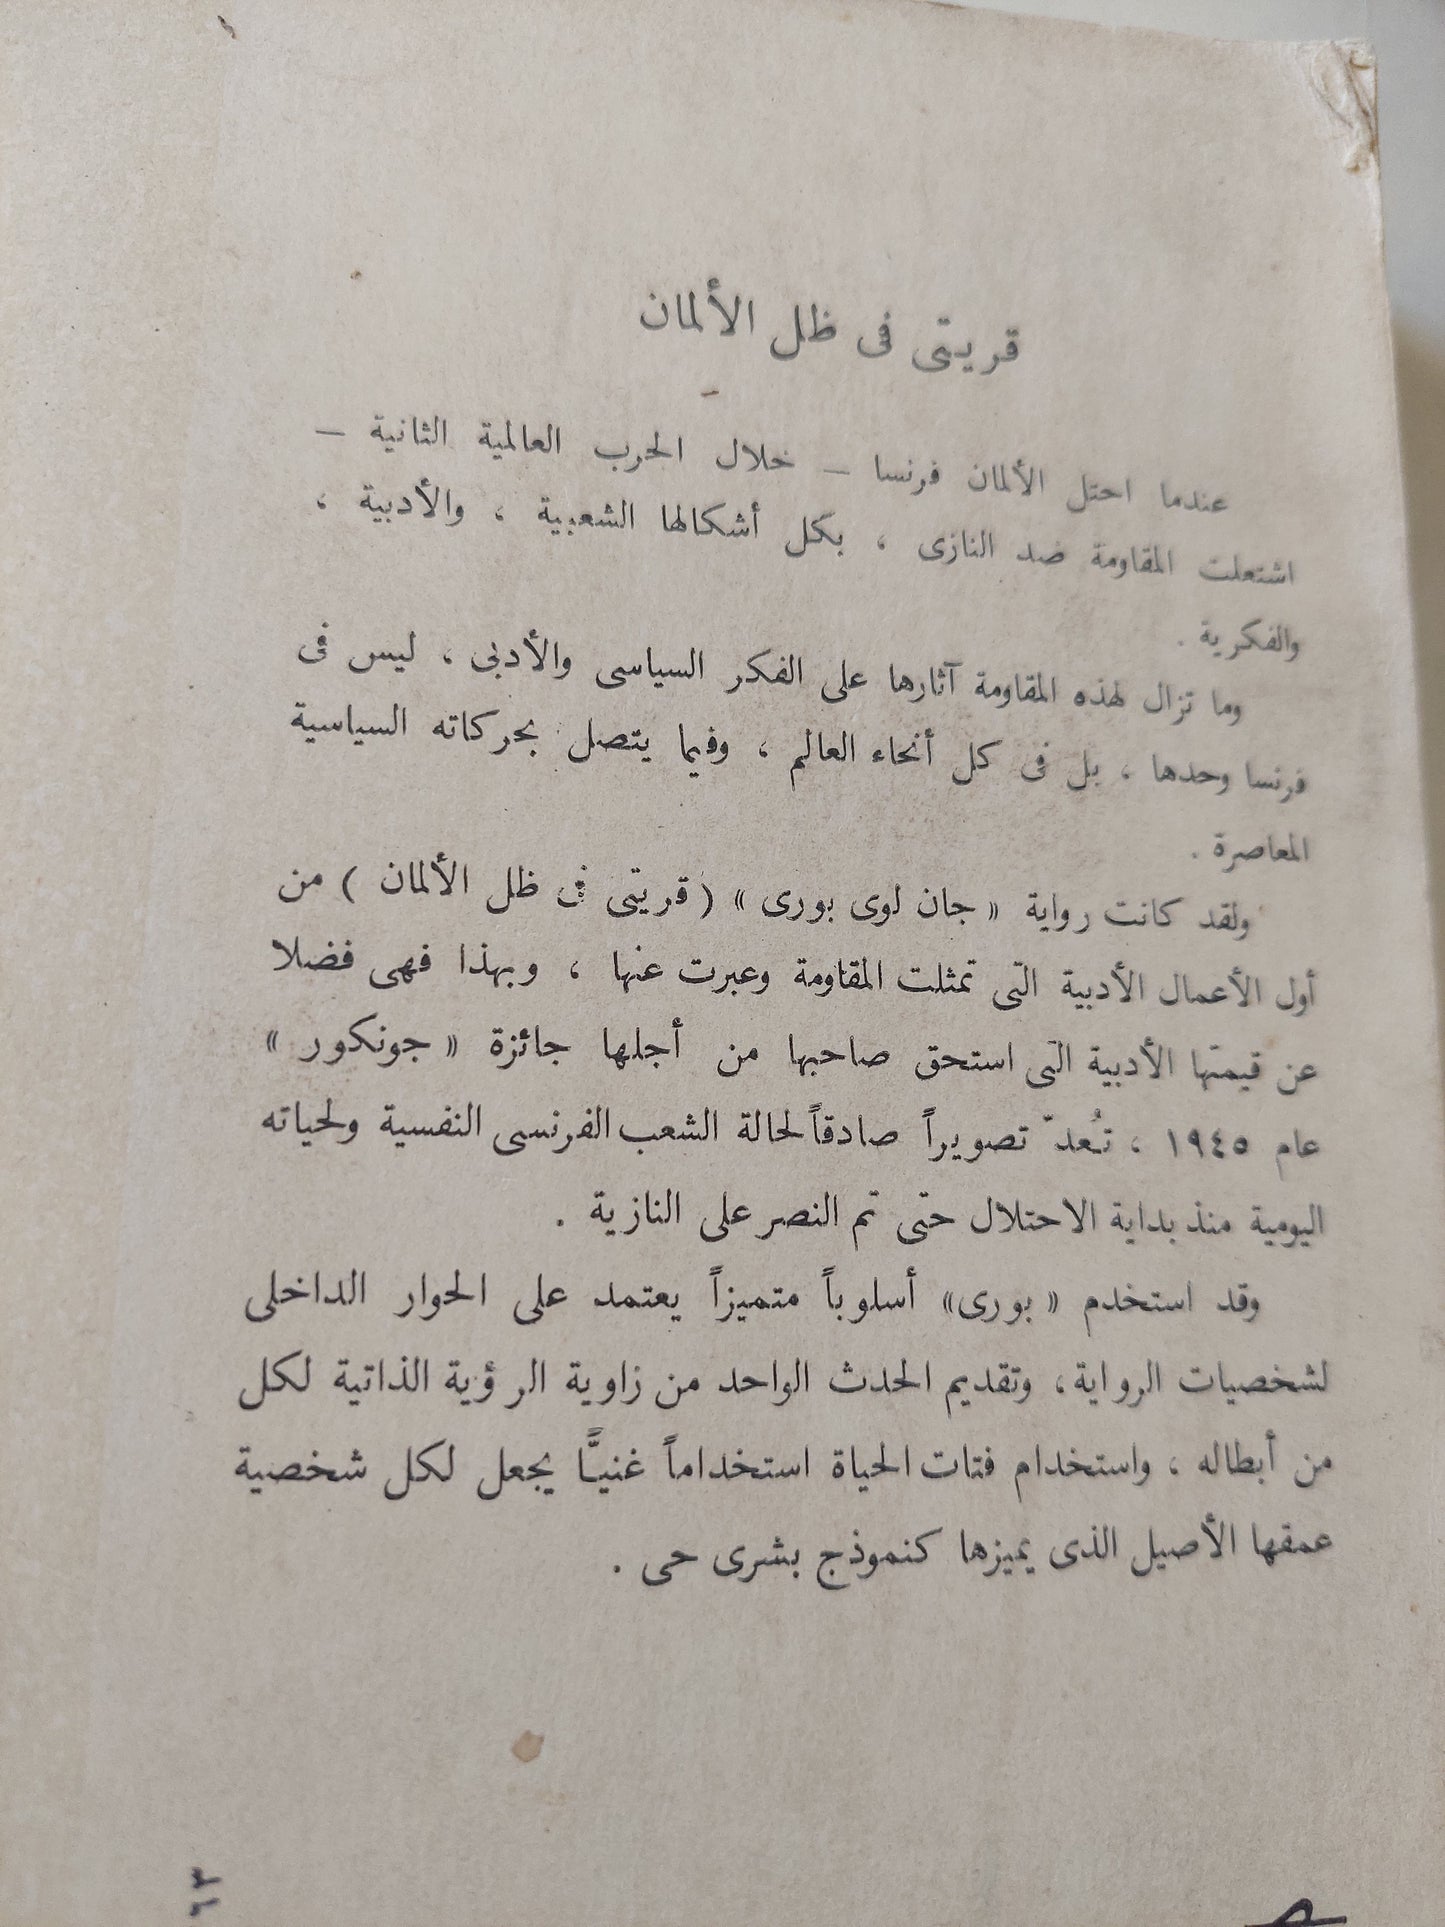 قريتى فى ظل الألمان
عندما احتل الألمان فرنسا – خلال الحرب العالمية الثانية –
اشتعلت المقاومة ضد النازى ، بكل أشكالها الشعبية ، والأدبية ،
والفكرية .
وما تزال لهذه المقاومة آثارها على الفكر السياسى والأدبى ، ليس فى
فرنسا وحدها ، بل فى كل أنحاء العالم ، وفيما يتصل بحركاته السياسية
المعاصرة .
ولقد كانت رواية « جان لوى بورى » ( قريتى فى ظل الألمان ) من
أول الأعمال الأدبية التى تمثلت المقاومة وعبرت عنها ، وبهذا فهى فضلا
عن قيمتها الأدبية التى استحق صاحبها من أجلها جائزة « جونكور »
عام ١٩٤٥ ، تُعدّ تصويراً صادقاً لحالة الشعب الفرنسى النفسية ولحياته
اليومية منذ بداية الاحتلال حتى تم النصر على النازية .
وقد استخدم « بورى» أسلوباً متميزاً يعتمد على الحوار الداخلى
لشخصيات الرواية ، وتقديم الحدث الواحد من زاوية الرؤية الذاتية لكل
من أبطاله ، واستخدام فتات الحياة استخداماً غنيًّا يجعل لكل شخصية
عمقها الأصيل الذى يميزها كنموذج بشرى حى .